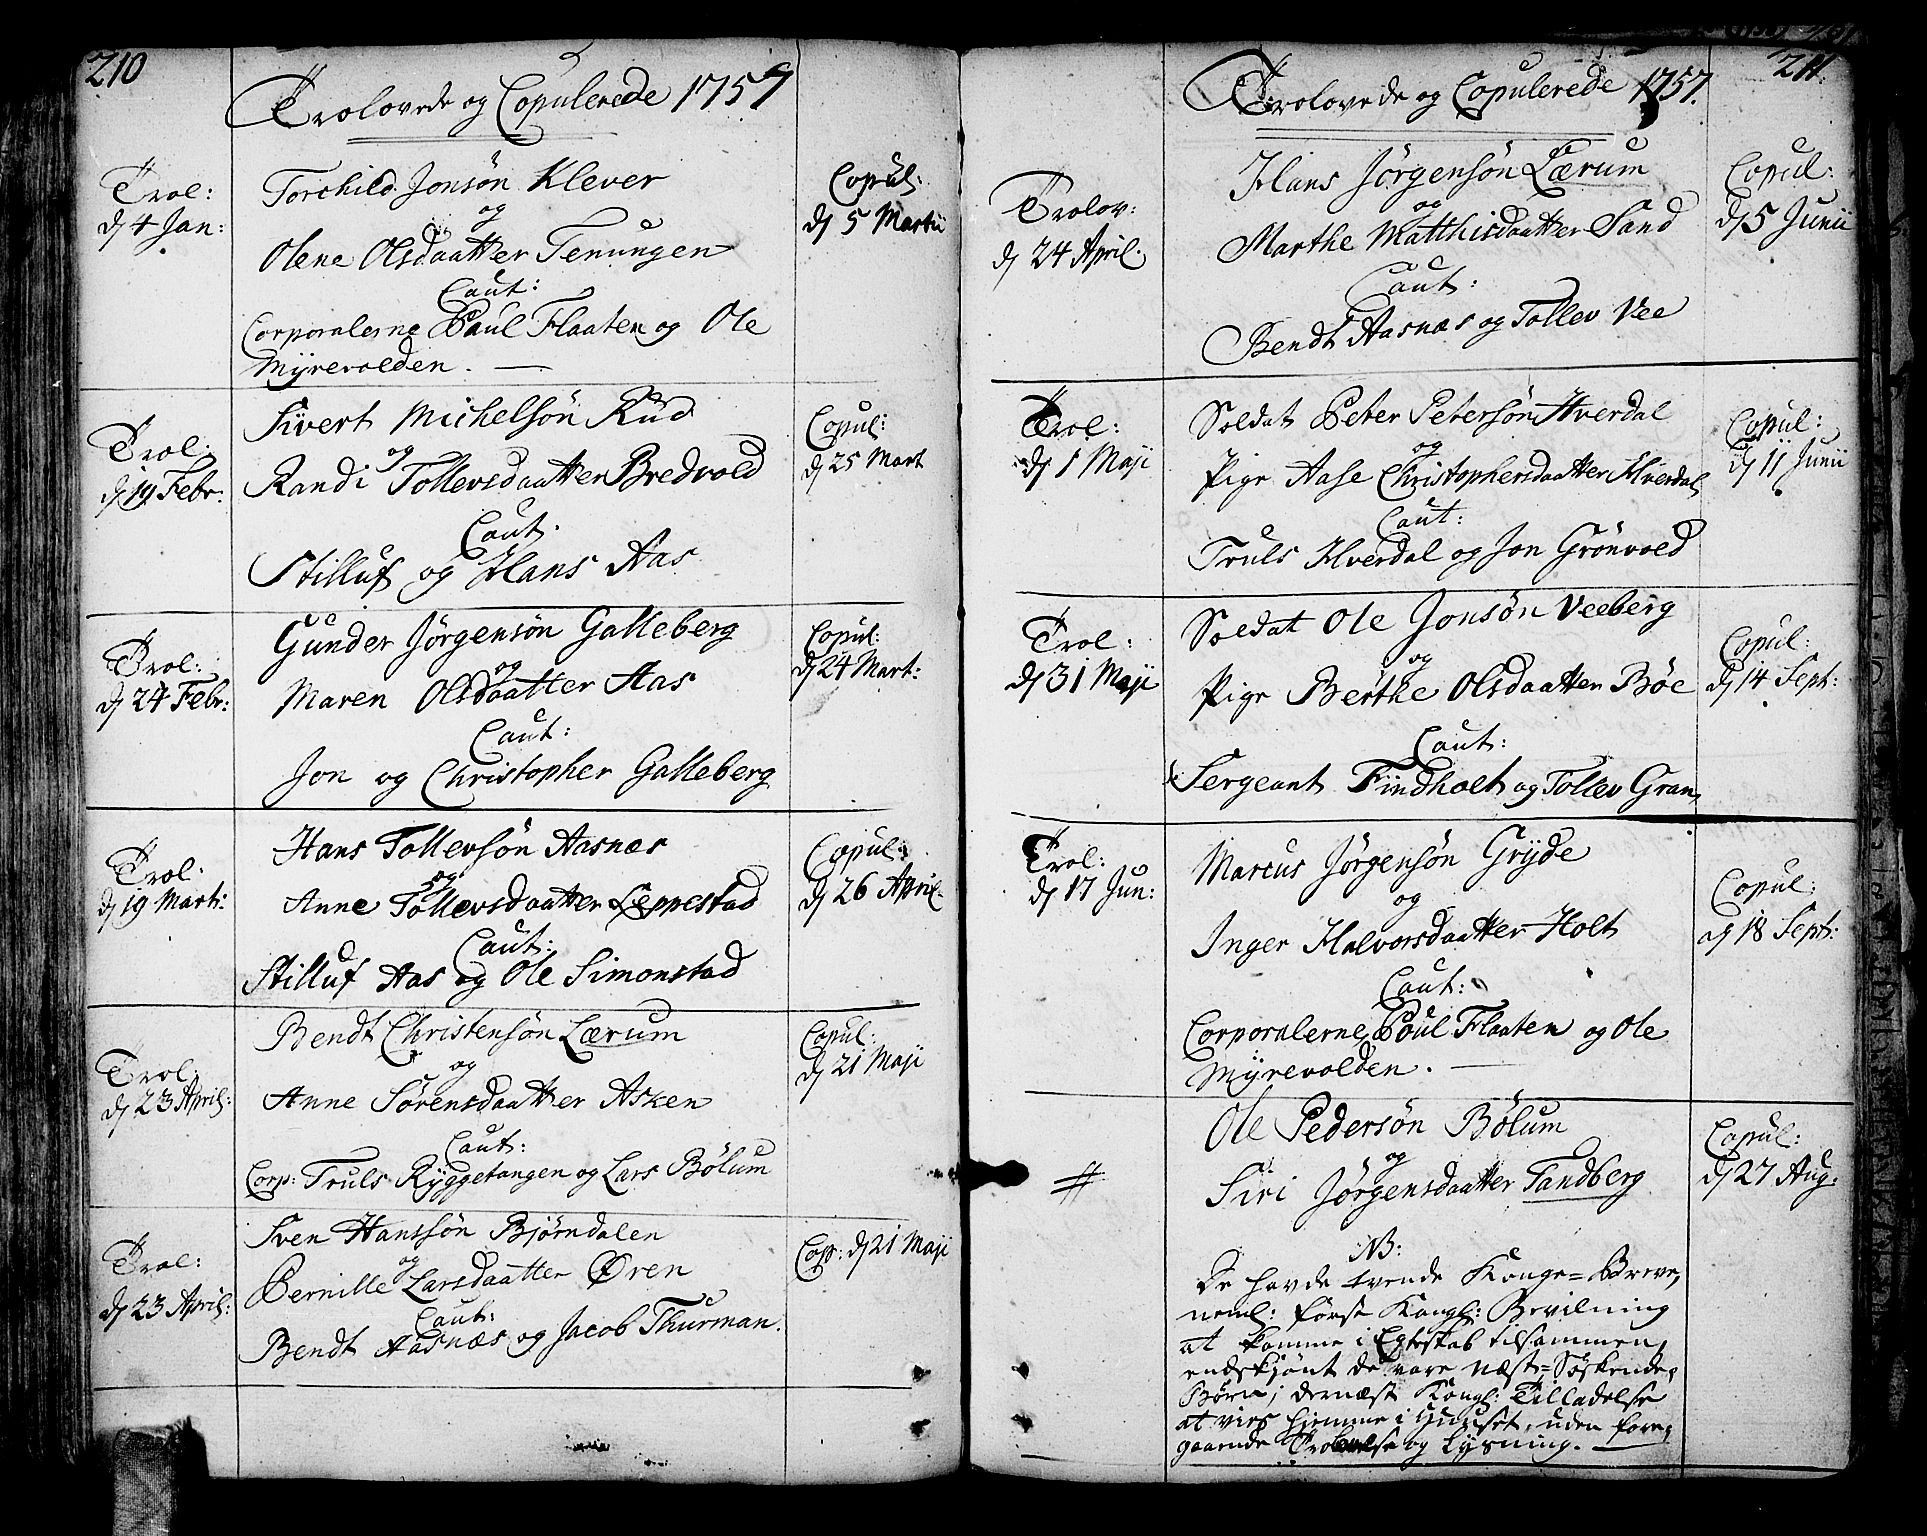 210
Trolovede og Copulerede 1757
Trol:
d 4 Jan:
Torchild Jonsön Klever
og
Olene Olsdaatter Tenungen
Caut:
Corporalerne Poul Flaaten og Ole
Myrevolden.
Copul:
d 5 Martii
Trol:
d 19 Febr:
Sivert Michelsön Rud
og
Randi Tollevsdaatter Bredvold
Caut:
Stilluf og Hans Aas
Copul:
d 25 Mart
Trol:
d 24 Febr:
Gunder Jörgensön Galleberg
og
Maren Olsdaatter Aas
Caut:
Jon og Christopher Galleberg
Copul:
d 24 Mart:
Trol:
d 19 Mart:
Hans Tollevsön Aasnæs
og
Anne Tollevsdaatter Leppestad
Caut:
Stilluf Aas og Ole Simonstad
Copul:
d 26 April
Trol:
d 23 April:
Bendt Christensön Lærum
og
Anne Sörensdaatter Asken
Caut:
Corp: Truls Ryggetangen og Lars Bölum
Copul:
d 21 Maji
Trol:
d 23 April:
Sven Hanssön Björndalen
og
Pernille Larsdaatter Ören
Caut:
Bendt Aasnæs og Jacob Thurman.
Cop: d 21 Maji
211
Trolovede og Copulerede 1757.
Trolov:
d 24 April.
Hans Jörgensön Lærum
og
Marthe Matthisdaatter Sand
Caut:
Bendt Aasnæs og Tollev Vee
Copul:
d 5 Junii
Trol:
d 1 Maji
Soldat Peter Petersön Hverdal
og
Pige Aase Christophersdaatter Hverdal
Caut:
Truls Hverdal og Jon Grönvold
Copul:
d 11 Junii
Trol:
d 31 Maji
Soldat Ole Jonsön Veeberg
og
Pige Berthe Olsdaatter Böe
Caut:
Sergeant Findholt og Tollev Gran,
Copul:
d 14 Sept:
Trol:
d 17 Jun:
Marcus Jörgensön Gryde
og
Inger Halvorsdaatter Holt
Caut:
Corporalerne Poul Flaaten og Ole
Myrevolden.
Copul:
d 18 Sept:
#
Ole Pedersön Bölum
og
Siri Jörgensdaatter Sandberg
NB:
De havde tvende Konge=Breve,
neml: först Kongl: Bevilning
at komme i Egteskab tilsammen,
endskjönt de vare Næst=Söskende,
Börn; dernæst Kongl: Tilladelse
at vies hjemme i Huuset, uden fore,
gaaende Trolovelse og Lysning.
Copul:
d 27 Aug: